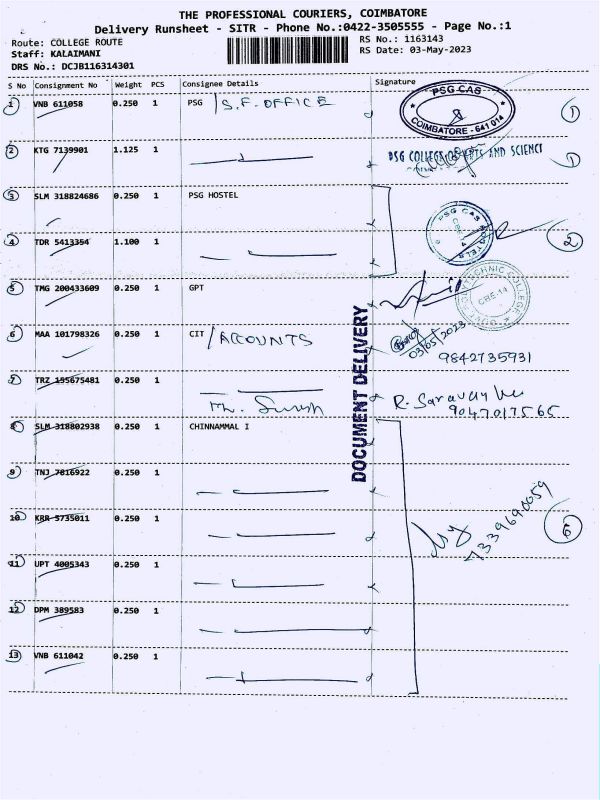 THE PROFESSIONAL COURIERS, COIMBATORE
Delivery Runsheet - SITR - Phone No.:0422-3505555 - Page No.:1
Route: COLLEGE ROUTE
Staff: KALAIMANI
DRS No.: DCJB116314301
RS No.: 1163143
RS Date: 03-May-2023
S No Consignment No Weight PCS Consignee Details Signature
1 VNB 611058 0.250 1 PSG / S.F. OFFICE
PSG CAS
COIMBATORE - 641 014
1
2 KTG 7139901 1.125 1
PSG COLLEGE OF ARTS AND SCIENCE
1
3 SLM 318824686 0.250 1 PSG HOSTEL
4 TDR 5413354 1.100 1
PSG CAS
HOSTELS
2
5 TMG 200433609 0.250 1 GPT
POLYTECHNIC COLLEGE
CBE-14
6 MAA 101798326 0.250 1 CIT / ACCOUNTS
03/05/2023
9842735931
7 TRZ 195675481 0.250 1
R. Saravay
9047017565
DOCUMENT DELIVERY
8 SLM 318802938 0.250 1 CHINNAMMAL I
9 TNJ 7016922 0.250 1
10 KRR 5735011 0.250 1
7339690059
6
11 UPT 4005343 0.250 1
12 DPM 389583 0.250 1
13 VNB 611042 0.250 1